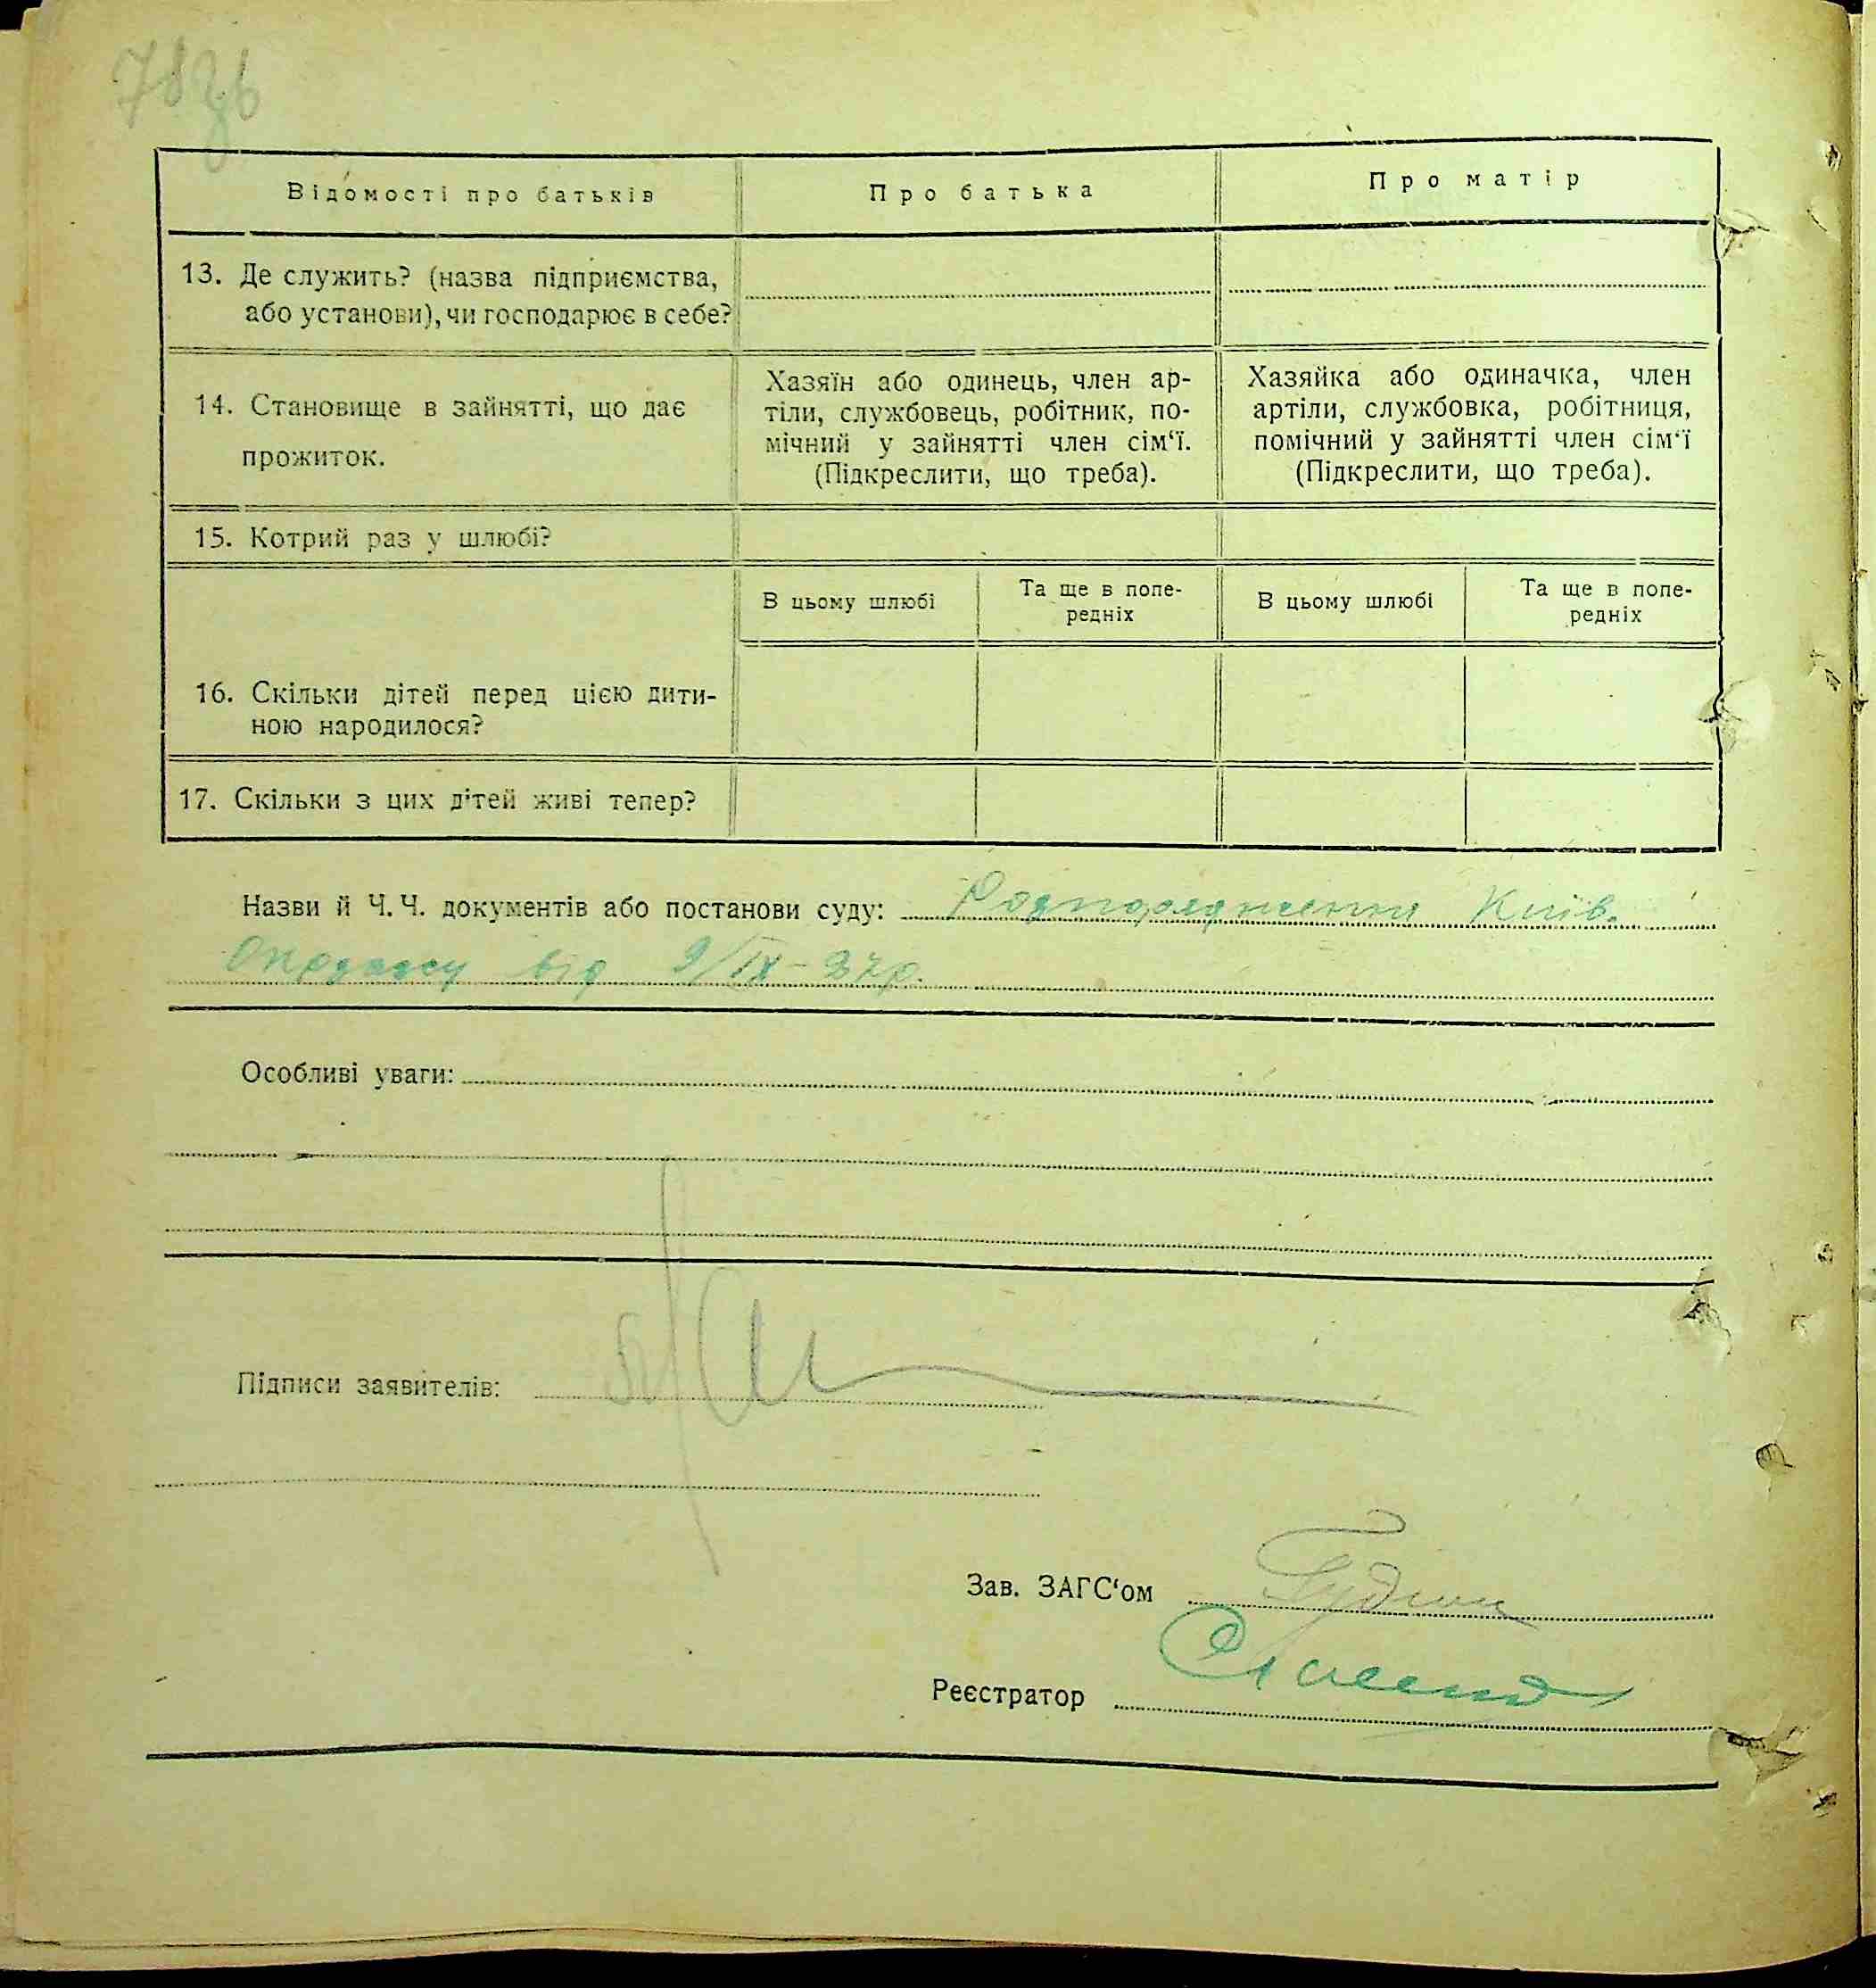 78зв
Відомості про батьків
Про батька
Про матір
13. Де служить? (назва підприємства,
або установи), чи господарює в себе?
14. Становище в зайнятті, що дає
прожиток.
Хазяїн або одинець, член ар-
тіли, службовець, робітник, по-
мічний у зайнятті член сім‘ї.
(Підкреслити, що треба).
Хазяйка або одиначка, член
артіли, службовка, робітниця,
помічний у зайнятті член сім‘ї
(Підкреслити, що треба).
15. Котрий раз у шлюбі?
В цьому шлюбі
Та ще в попе-
редніх
В цьому шлюбі
Та ще в попе-
редніх
16. Скільки дітей перед цією дити-
ною народилося?
17. Скільки з цих дітей живі тепер?
Назви й Ч. Ч. документів або постанови суду: Розпорядження Київ.
від 9/IX-
Особливі уваги:
Підписи заявителів:
Зав. ЗАГС‘ом
Реєстратор